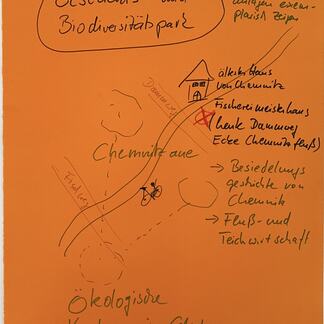 Geschichts- und
Biodiversitätspark
anlagen exem-
plarisch zeigen
ältestes Haus
von Chemnitz
Fischereimeisterhaus
(heute Dammweg
Ecke Chemnitzfluß)
Dammweg
Chemnitzaue
Fischweg
→ Besiedelungs
geschichte von
Chemnitz
→ Fluß- und
Teichwirtschaft
Ökologische